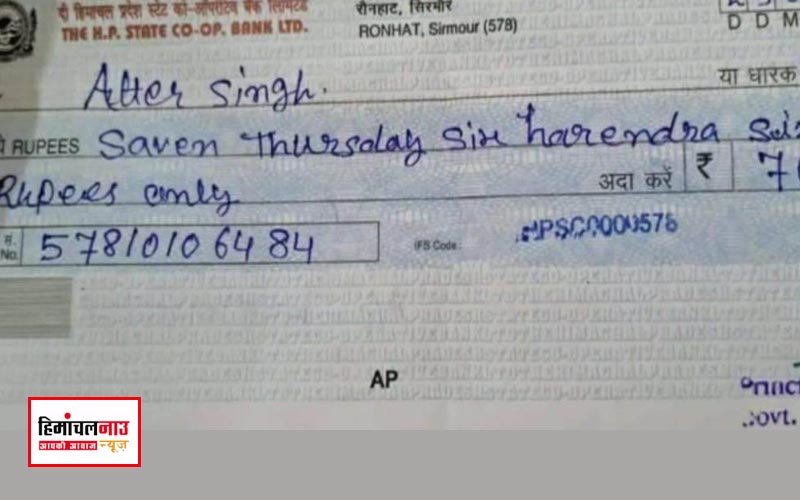 दी हिमाचल प्रदेश स्टेट को-ऑपरेटिव बैंक लिमिटेड
THE H.P. STATE CO-OP. BANK LTD.
रोनहाट, सिरमौर
RONHAT, Sirmour (578)
D D M
Atter Singh.
या धारक
RUPEES Saven Thursday six harendra
Rupees only
अदा करें ₹ 7
No. 57810106484
IFS Code:
AP
Govt.
हिमांचलनाउ
आपकी आवाज न्यूज़